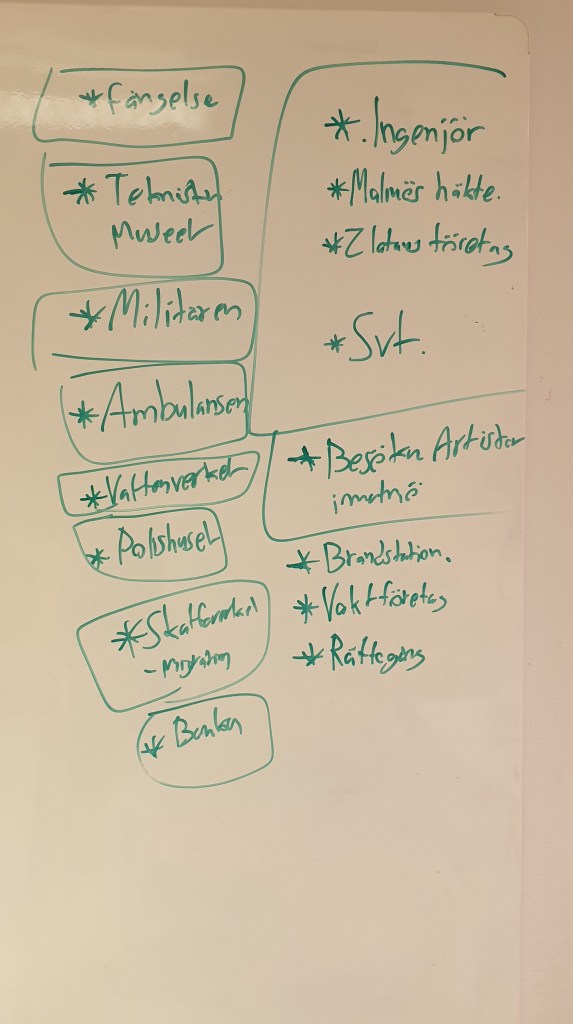 * Fängelse
* Tekniska
Museet
* Militären
* Ambulansen
* Vattenverket
* Polishuset
* Skatteverket
- Migration
* Banken
* . Ingenjör
* Malmös häkte.
* Zlatans företag
* Svt.
* Besöka Artister
i malmö
* Brandstation.
* Vaktföretag
* Rättegång